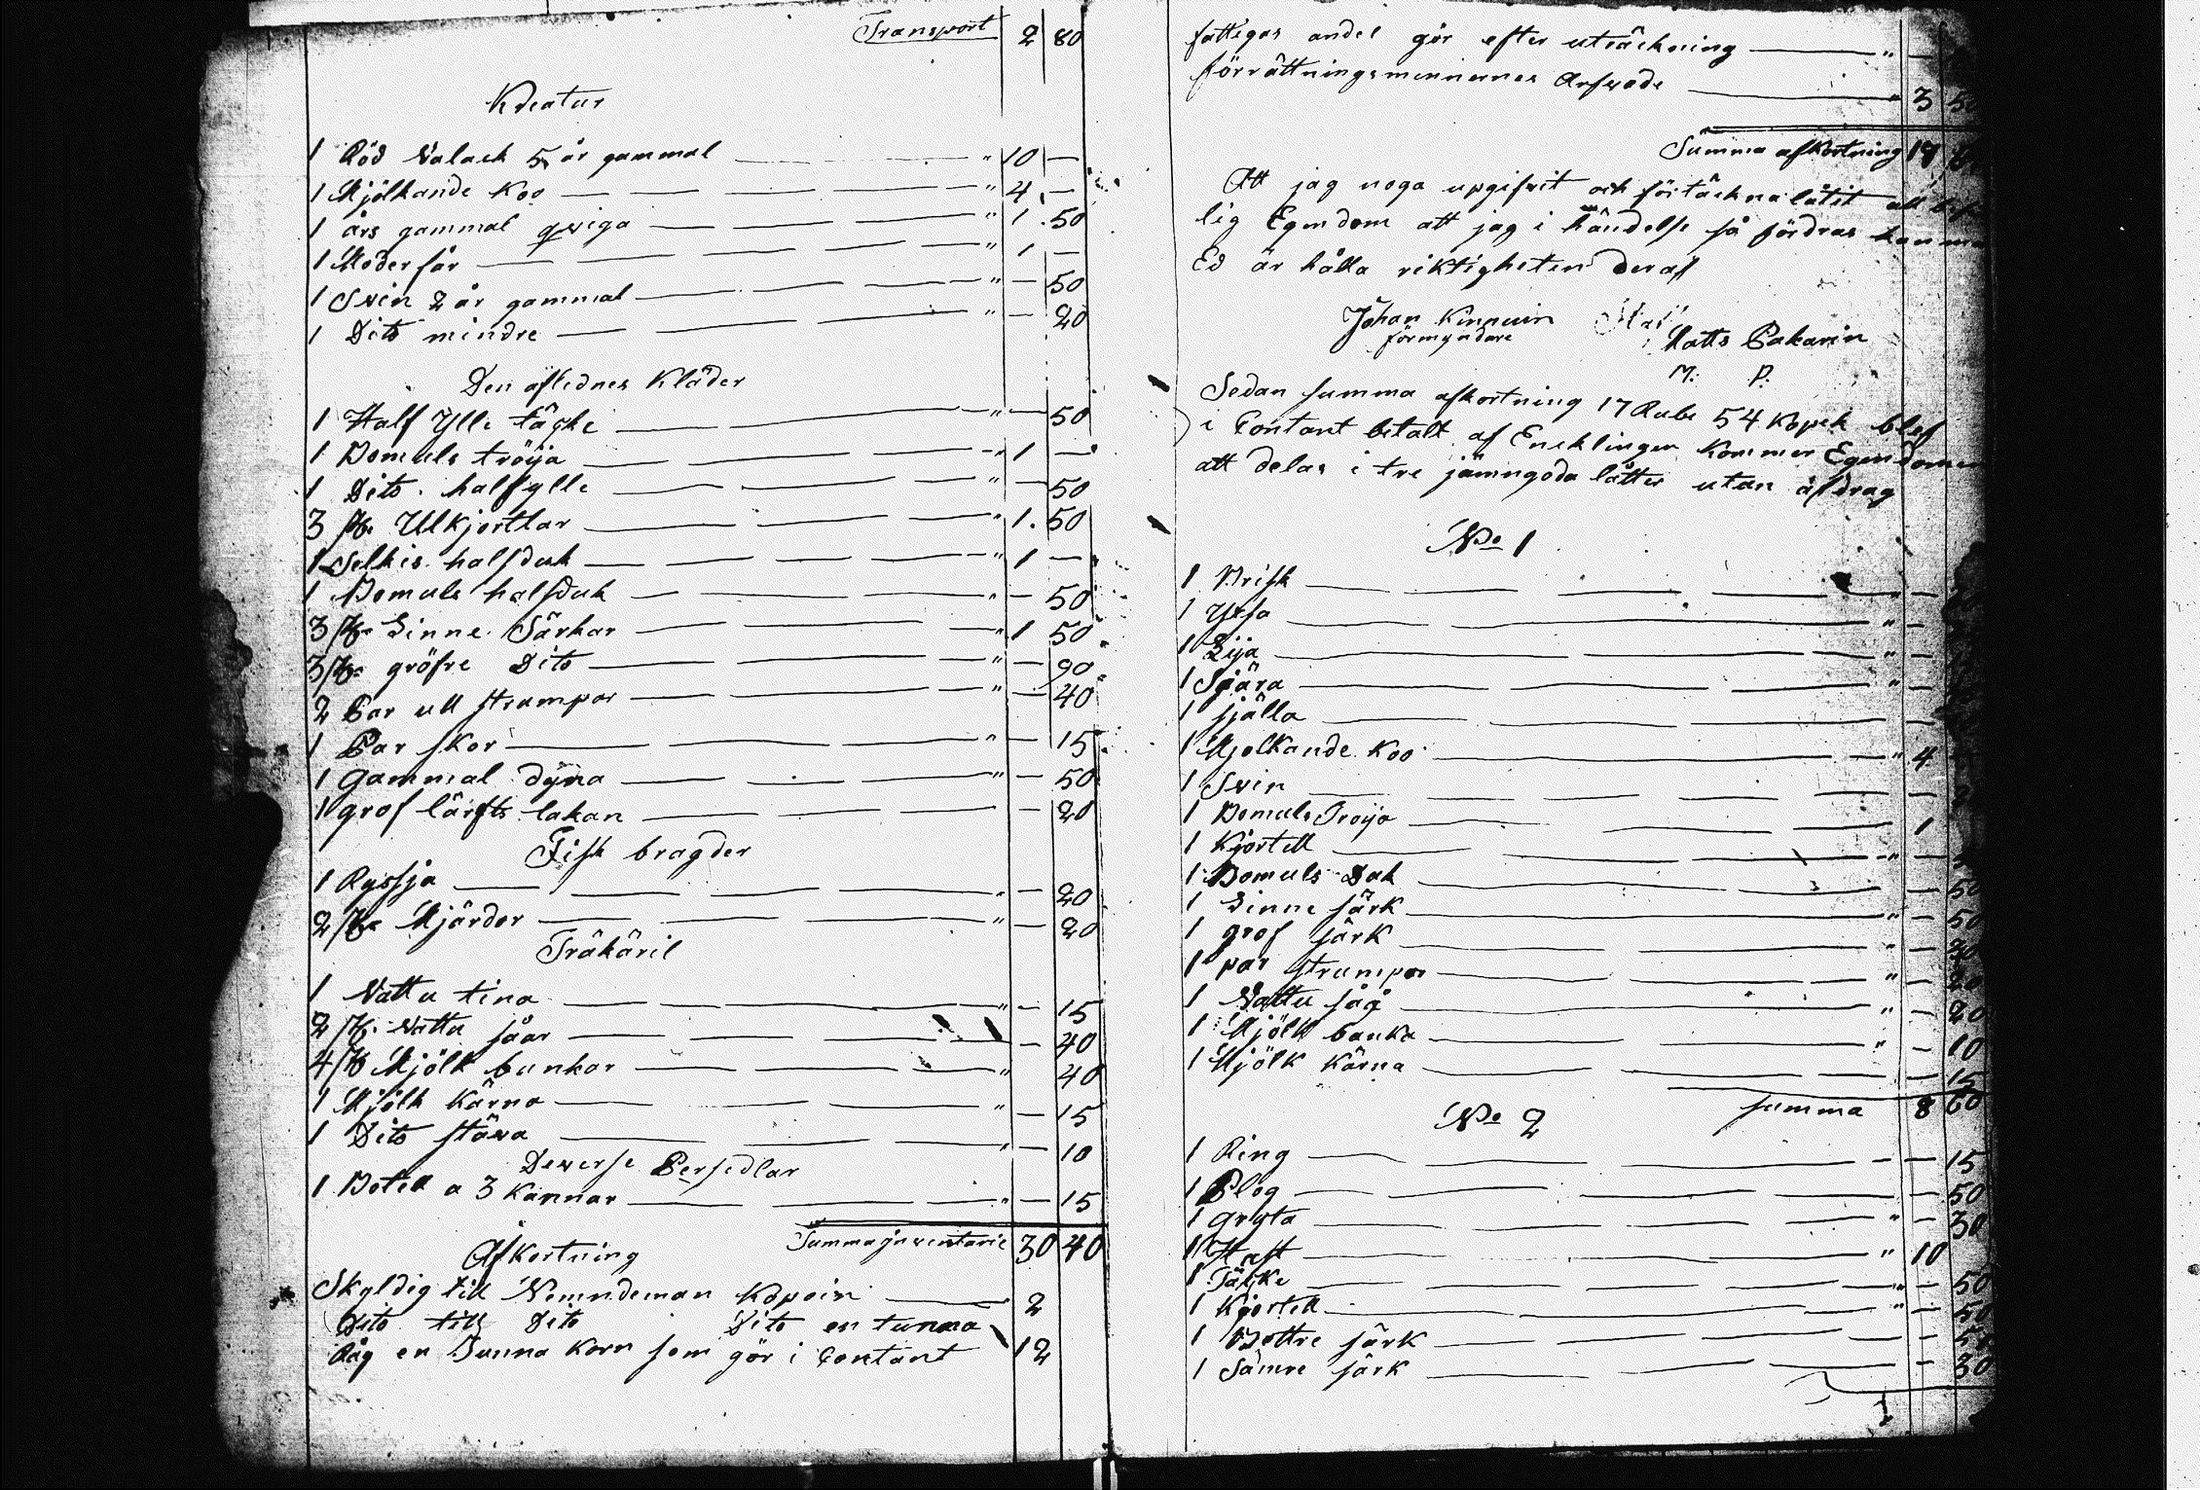 Transport 2 80
Kreatur
1 Röd Valack 5 år gammal — " 10 —
1 Mjölkande Koo — " 4 —
1 års gammal qviga — " 1.50
1 Moder får — " 1 —
1 Svin 2 år gammal — " — 50
1 Dito mindre — " — 20
Den aflednes Kläder
1 Half Ylle täcke — " — 50
1 Bomuls tröija — " 1 —
1 Dito halfylle — " — 50
3 st. Ullkjortlar — " 1.50
1 Selkis halsduk — " 1 —
1 Bomuls halsduk — " — 50
3 st. Linne Särkar — " 1 50
3 st. gröfre Dito — " — 90
2 Par ull strumpor — " — 40
1 Par skor — " — 15
1 Gammal dyna — " — 50
1 grof lärfts lakan — — 20
Fisk bragder
1 Ryssja — " — 20
2 st. Mjärdor — " — 20
Träkäril
1 Vattu tina — " — 15
2 st. Vattu såar — — 40
4 st Mjölk bunkar — " 40
1 Mjölk Kärna — " — 15
1 Dito stäva — " — 10
Deverse Persedlar
1 Botell a 3 Kannar — " — 15
Summa Inventarie 30 40
Afkortning
Skyldig till Nemndeman Kopoin — 2
Dito till Dito Dito en tunna
Råg en Tunna Korn som gör i Contant 12
fattigas andel gör efter uträckning — " —
förrättningsmennernes Arfvode — " 3 50
Summa afkortning 17
Att jag noga upgifvit och förtäckna låtit all
lig Egendom att jag i händelse så fördras kan med
Ed är hålla riktigheten deraf
Johan Kinnuin
förmyndare
Matts Pakarin
M. P.
Sedan summa afkortning 17 Rube 54 Kopek blef
i Contant betalt af Encklingen Kommer Egendomen
att delas i tre jämngoda låtter utan afdrag
No 1
1 — " —
1 Yxa — " —
1 Lija — " —
1 Skära — " —
1 själla — —
1 Mjolkande Koo — " 4
1 Svin — " —
1 Bomuls Tröija — 1
1 Kjortell — " —
1 Bomuls Duk — — 50
1 Linne särk — " — 50
1 grof särk — " — 30
1 par strumpor — " — 20
1 Vattu såg — " — 20
1 Mjölk bunka — " — 10
1 Mjölk Kärna — — 15
summa 8 60
No 2
1 Ring — — 15
1 Plog — — 50
1 Gryta — " — 30
1 Häst — " 10
1 Täcke — " — 50
1 Kjortell — " — 50
1 Bettre särk — — 50
1 Sämre särk — — 30